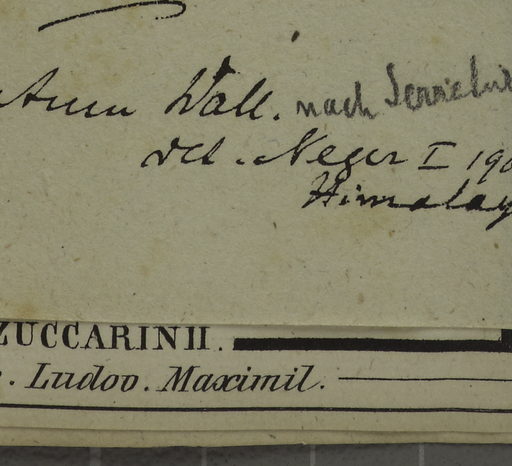 Wall. nach
det. Neger I 190
Himalay
ZUCCARINII.
. Ludov. Maximil.